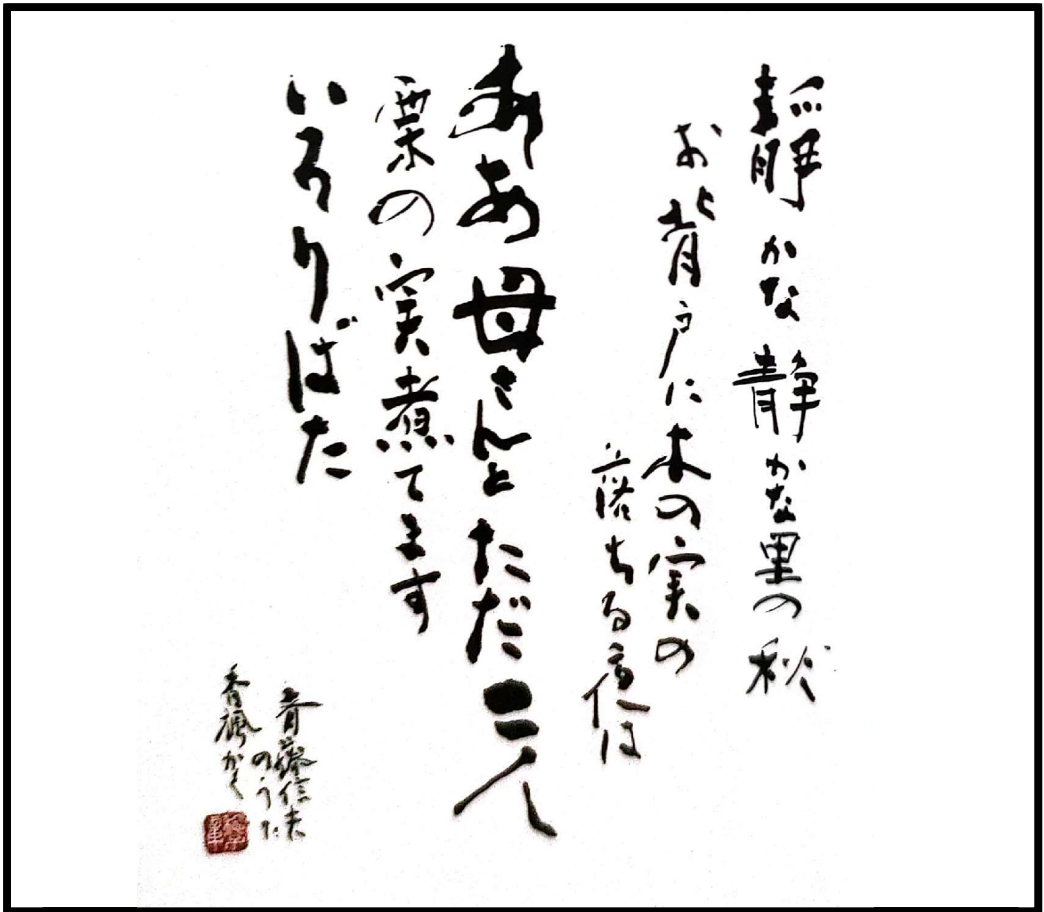 靜かな静かな里の秋
お背戸に木の実の
落ちる夜は
ああ母さんとただ二人
栗の実煮てます
いろりばた
斉藤信夫
のうた
香楓かく